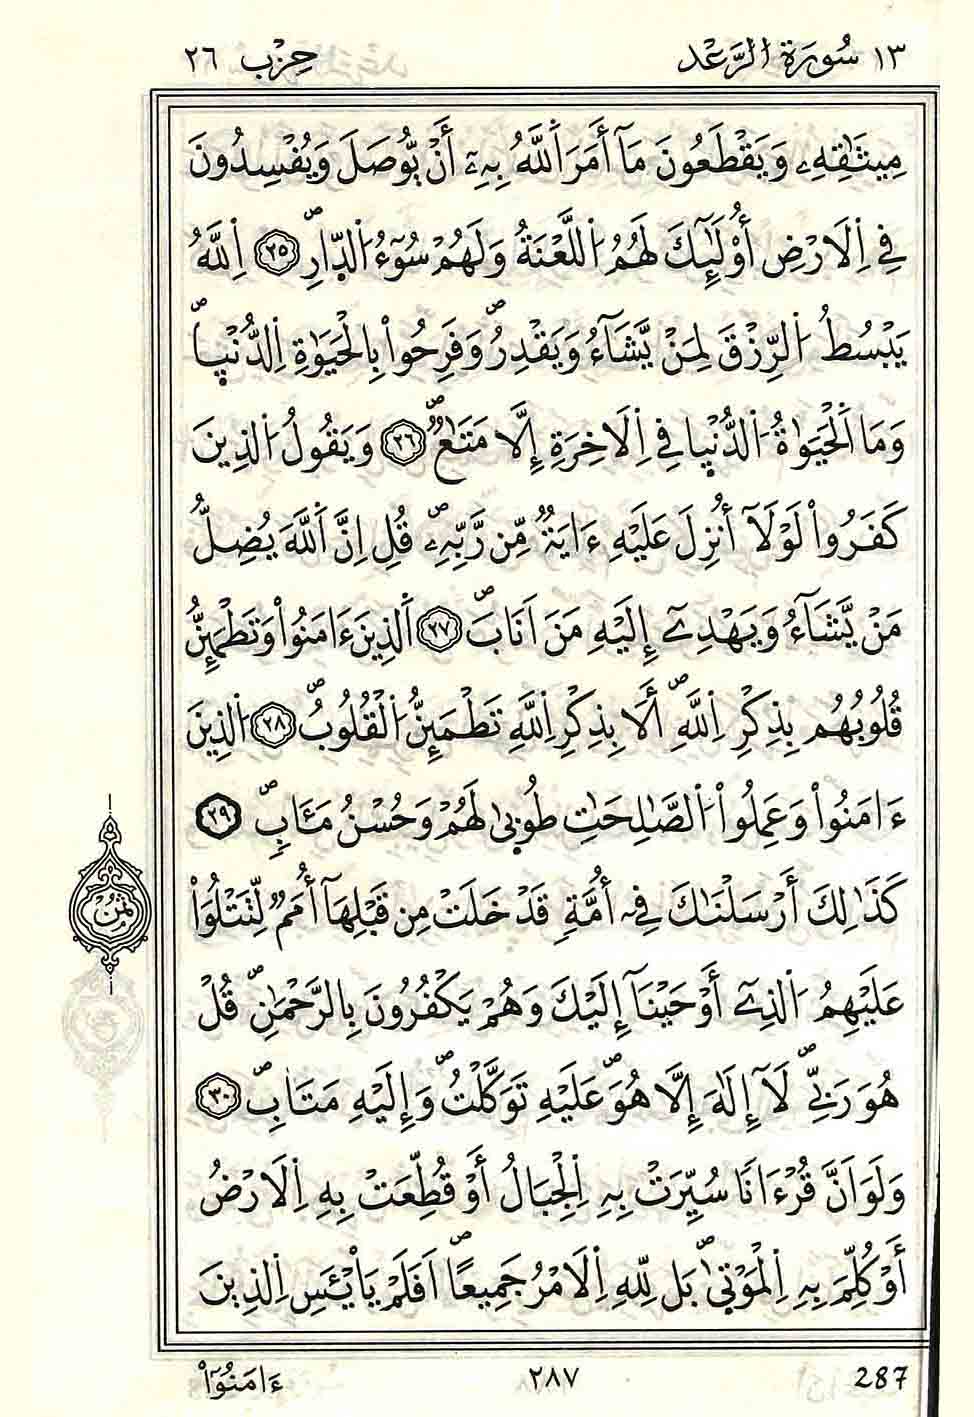 ١٣ سُورَةُ الرَّعْدِ حِزْب ٢٦
مِيثَٰقِهِۦ وَيَقْطَعُونَ مَآ أَمَرَ اَ۬للَّهُ بِهِۦٓ أَنْ يُّوصَلَ وَيُفْسِدُونَ
فِے اِ۬لَارْضِ أُوْلَٰٓئِكَ لَهُمُ اُ۬للَّعْنَةُ وَلَهُمْ سُوٓءُ اُ۬لدّ۪ارِۖ ٢٥ اِ۬للَّهُ
يَبْسُطُ اُ۬لرِّزْقَ لِمَنْ يَّشَآءُ وَيَقْدِرُۖ وَفَرِحُواْ بِالْحَيَوٰةِ اِ۬لدُّنْي۪اۖ
وَمَا اَ۬لْحَيَوٰةُ اُ۬لدُّنْي۪ا فِے اِ۬لَاخِرَةِ إِلَّا مَتَٰعٞۖ ٢٦ وَيَقُولُ اُ۬لذِينَ
كَفَرُواْ لَوْلَآ أُنزِلَ عَلَيْهِ ءَايَةٞ مِّن رَّبِّهِۦۖ قُلِ اِنَّ اَ۬للَّهَ يُضِلُّ
مَنْ يَّشَآءُ وَيَهْدِےٓ إِلَيْهِ مَنَ اَنَابَۖ ٢٧ اَ۬لذِينَ ءَامَنُواْ وَتَطْمَئِنُّ
قُلُوبُهُم بِذِكْرِ اِ۬للَّهِۖ أَلَا بِذِكْرِ اِ۬للَّهِ تَطْمَئِنُّ اُ۬لْقُلُوبُۖ ٢٨ اُ۬لذِينَ
ءَامَنُواْ وَعَمِلُواْ اُ۬لصَّٰلِحَٰتِ طُوب۪ىٰ لَهُمْ وَحُسْنُ مَـَٔابٖۖ ٢٩
كَذَٰلِكَ أَرْسَلْنَٰكَ فِےٓ أُمَّةٖ قَدْ خَلَتْ مِن قَبْلِهَآ أُمَمٞ لِّتَتْلُوَاْ
ثُمُن
عَلَيْهِمُ اُ۬لذِےٓ أَوْحَيْنَآ إِلَيْكَ وَهُمْ يَكْفُرُونَ بِالرَّحْمَٰنِۖ قُلْ
هُوَ رَبِّےۖ لَآ إِلَٰهَ إِلَّا هُوَۖ عَلَيْهِ تَوَكَّلْتُۖ وَإِلَيْهِ مَتَابِۖ ٣٠
وَلَوَ اَنَّ قُرْءَاناٗ سُيِّرَتْ بِهِ اِ۬لْجِبَالُ أَوْ قُطِّعَتْ بِهِ اِ۬لَارْضُ
أَوْ كُلِّمَ بِهِ اِ۬لْمَوْت۪ىٰۖ بَل لِّلهِ اِ۬لَامْرُ جَمِيعاًۖ اَفَلَمْ يَاْيْـَٔسِ اِ۬لذِينَ
ءَامَنُوٓاْ ٢٨٧ 287